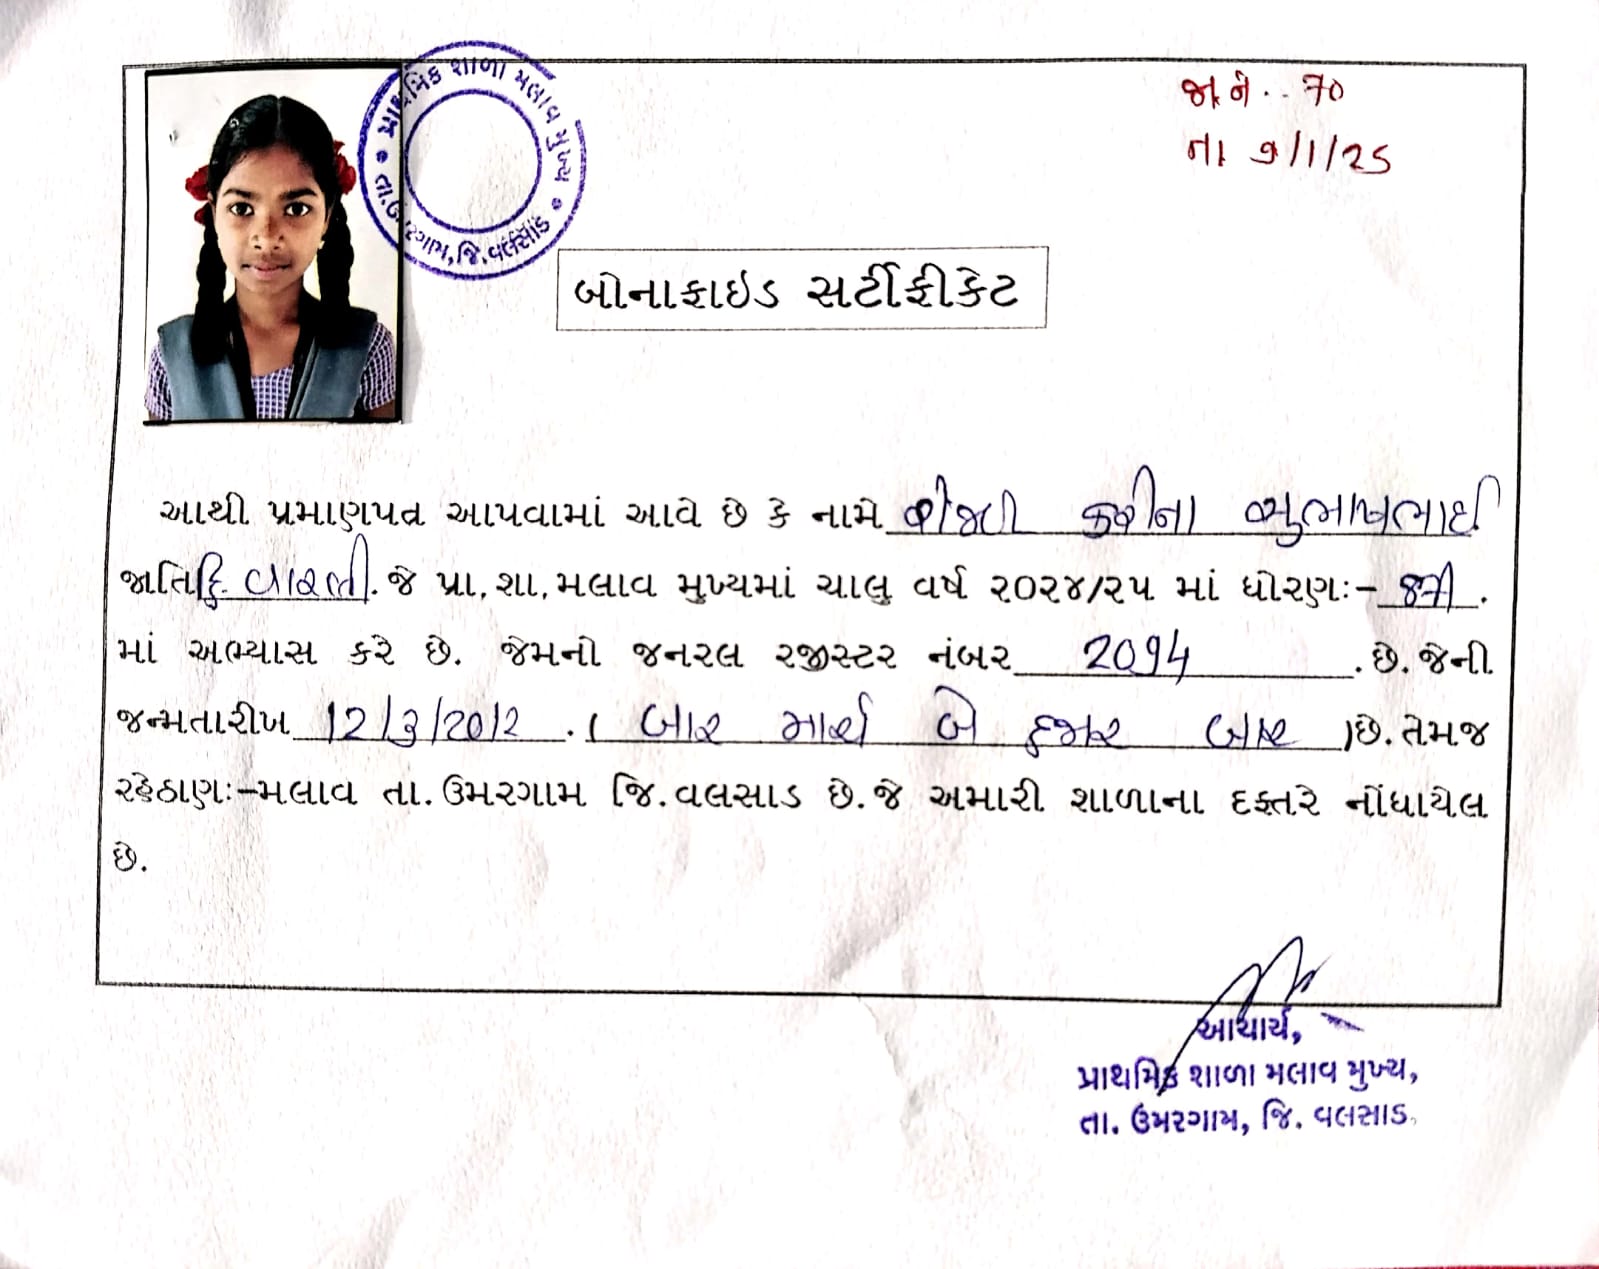 પ્રાથમિક શાળા મલાવ મુખ્ય
તા.ઉમરગામ, જિ.વલસાડ
જા નં.. 70
તા 9/1/25
બોનાફાઇડ સર્ટીફીકેટ
આથી પ્રમાણપત્ર આપવામાં આવે છે કે નામે કરીના સુભાષભાઈ
જાતિ હિ. વારલી. જે પ્રા.શા.મલાવ મુખ્યમાં ચાલુ વર્ષ ૨૦૨૪/૨૫ માં ધોરણઃ-
માં અભ્યાસ કરે છે. જેમનો જનરલ રજીસ્ટર નંબર 2094 .છે. જેની
જન્મતારીખ 12/3/2012 .( બાર માર્ચ બે હજાર બાર )છે. તેમજ
રહેઠાણઃ-મલાવ તા.ઉમરગામ જિ.વલસાડ છે.જે અમારી શાળાના દફ્તરે નોંધાયેલ
છે.
આચાર્ય,
પ્રાથમિક શાળા મલાવ મુખ્ય,
તા. ઉમરગામ, જિ. વલસાડ.